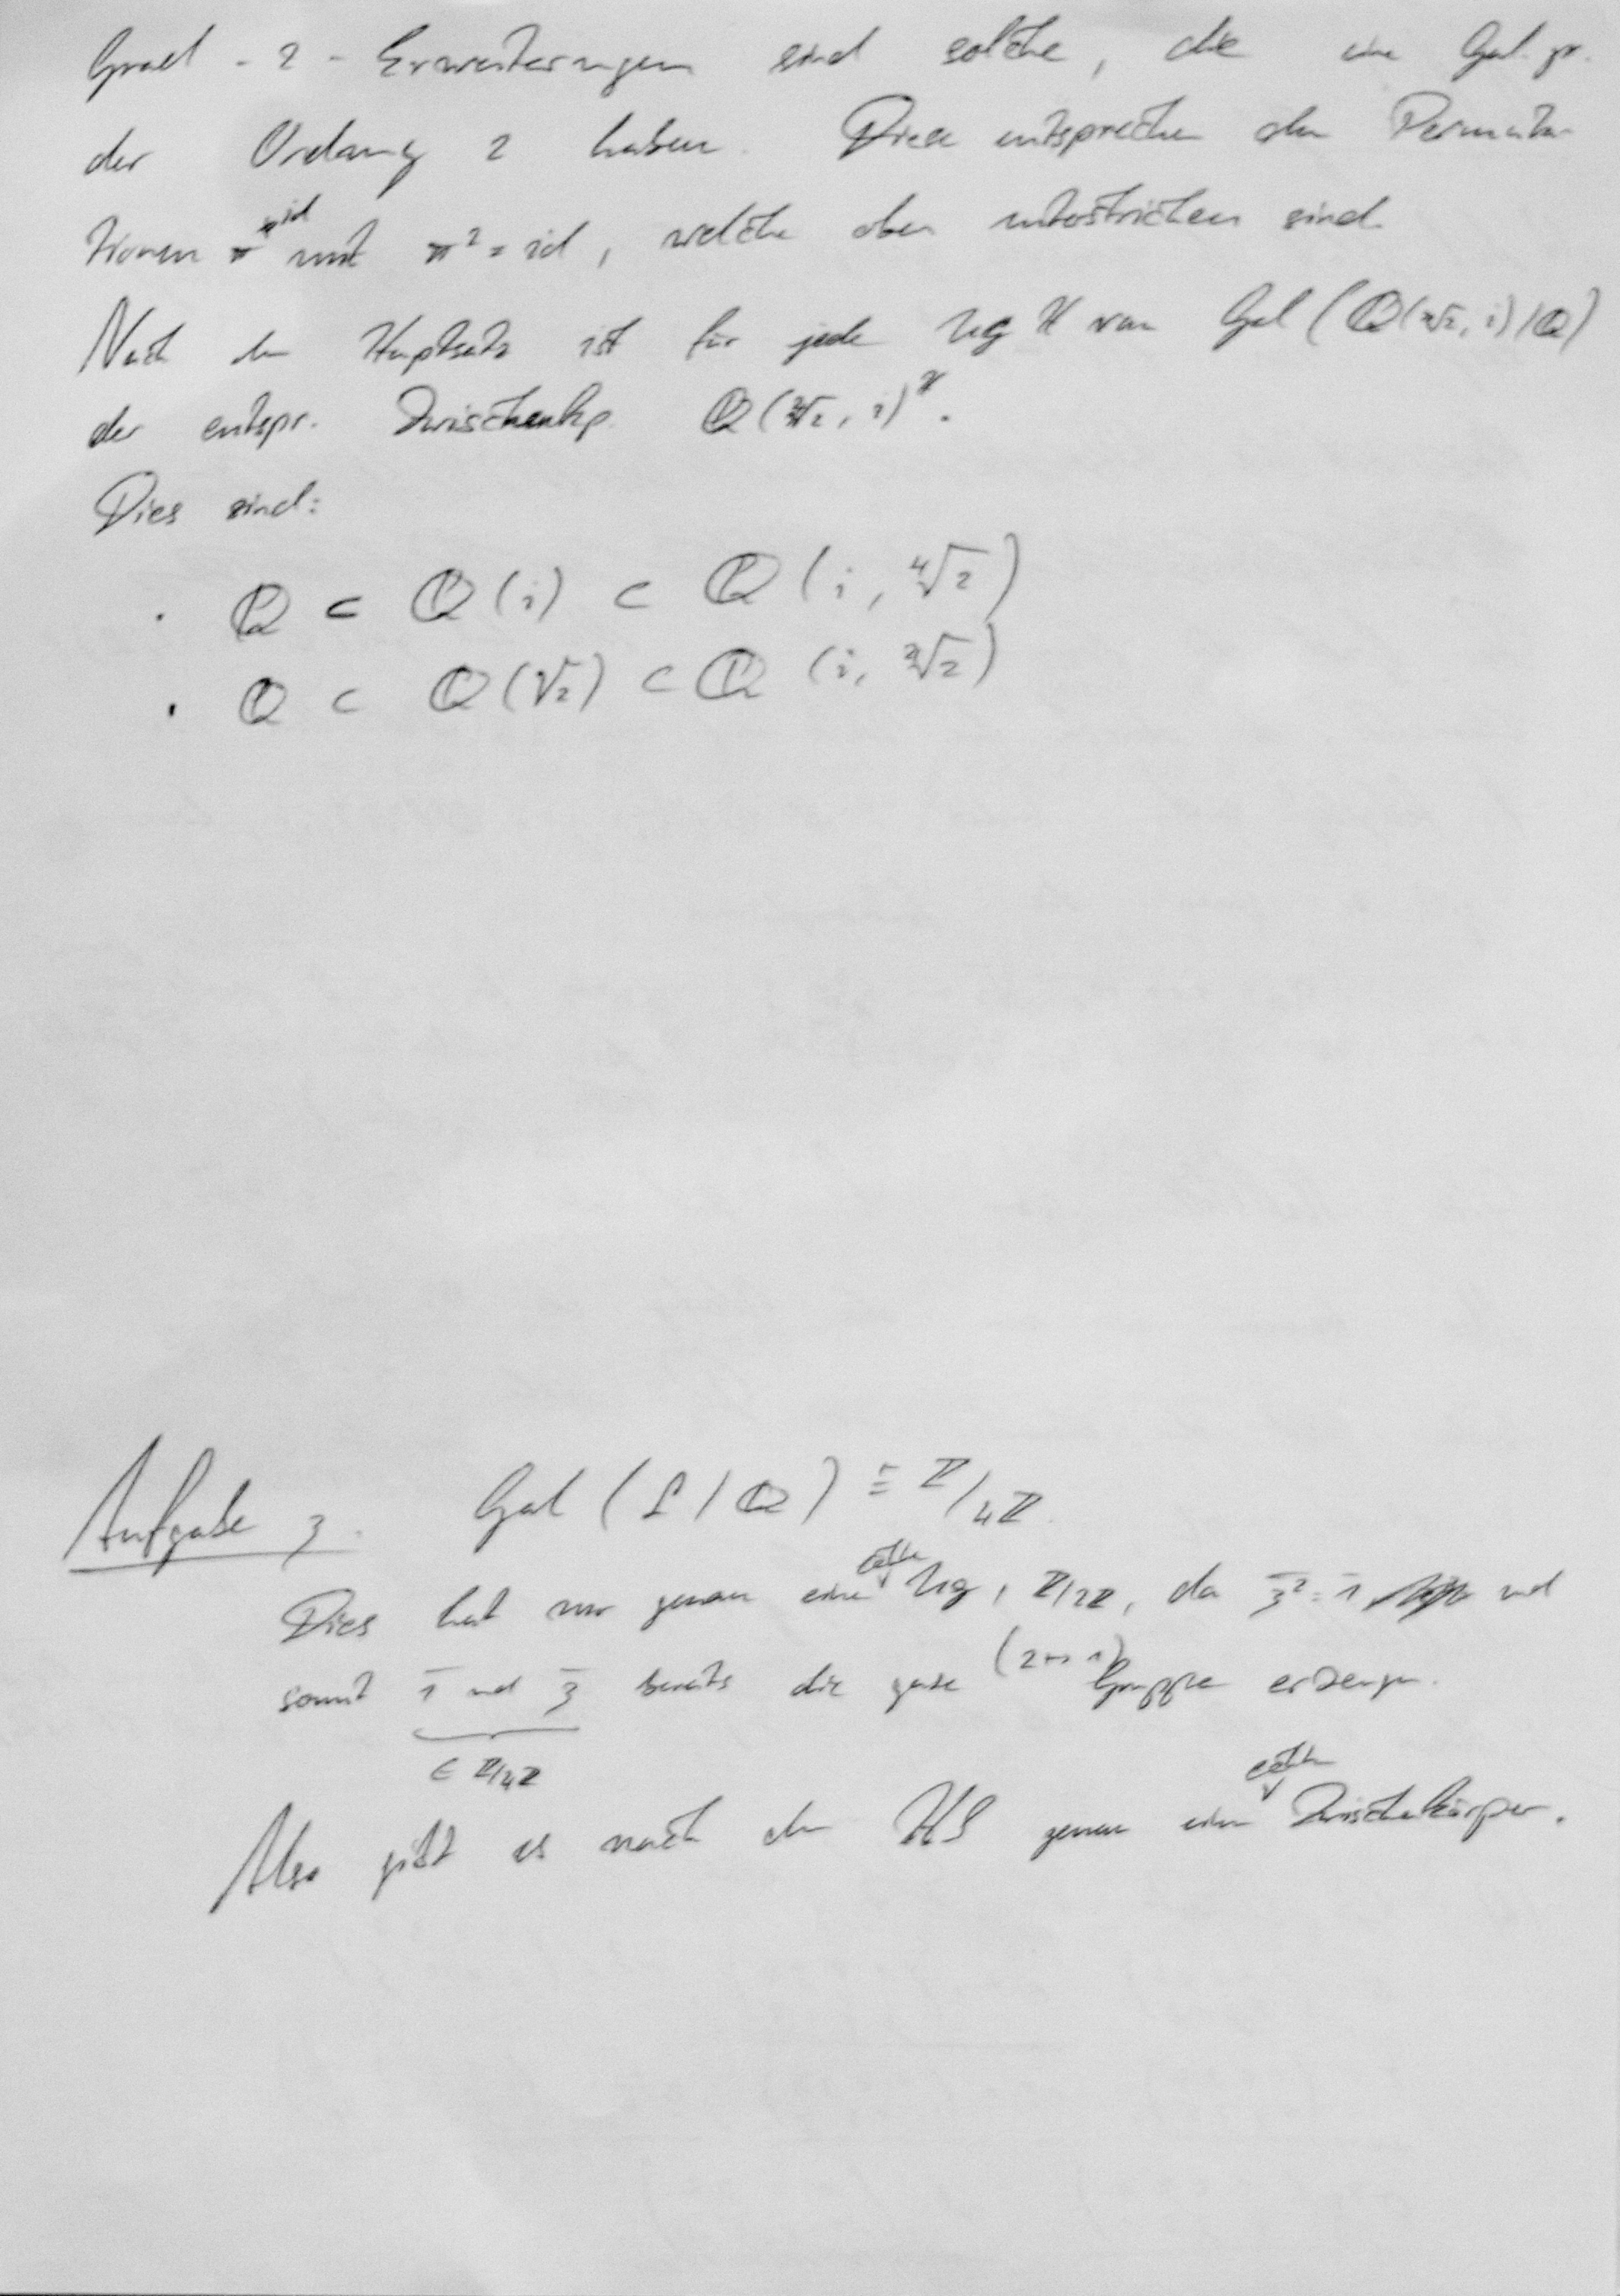 Grad-2-Erweiterungen sind solche, die eine Gal.gr.
der Ordnung 2 haben. Diese entsprechen den Permuta-
tionen π ≠ id mit π² = id, welche oben unterstrichen sind.
Nach dem Hauptsatz ist für jede Ug H von Gal(ℚ(∜2, i)/ℚ)
der entspr. Zwischenkp. ℚ(∜2, i)^H.
Dies sind:
· ℚ ⊂ ℚ(i) ⊂ ℚ(i, ∜2)
· ℚ ⊂ ℚ(√2) ⊂ ℚ(i, ∜2)
Aufgabe 3. Gal(L/ℚ) ≅ ℤ/4ℤ.
Dies hat nur genau eine echte Ug, ℤ/2ℤ, da 3̄² = 1̄ und
somit 1̄ und 3̄ bereits die ganze Gruppe erzeugen. (2 ↦ 1)
∈ ℤ/4ℤ
Also gibt es nach dem HS genau einen echten Zwischenkörper.